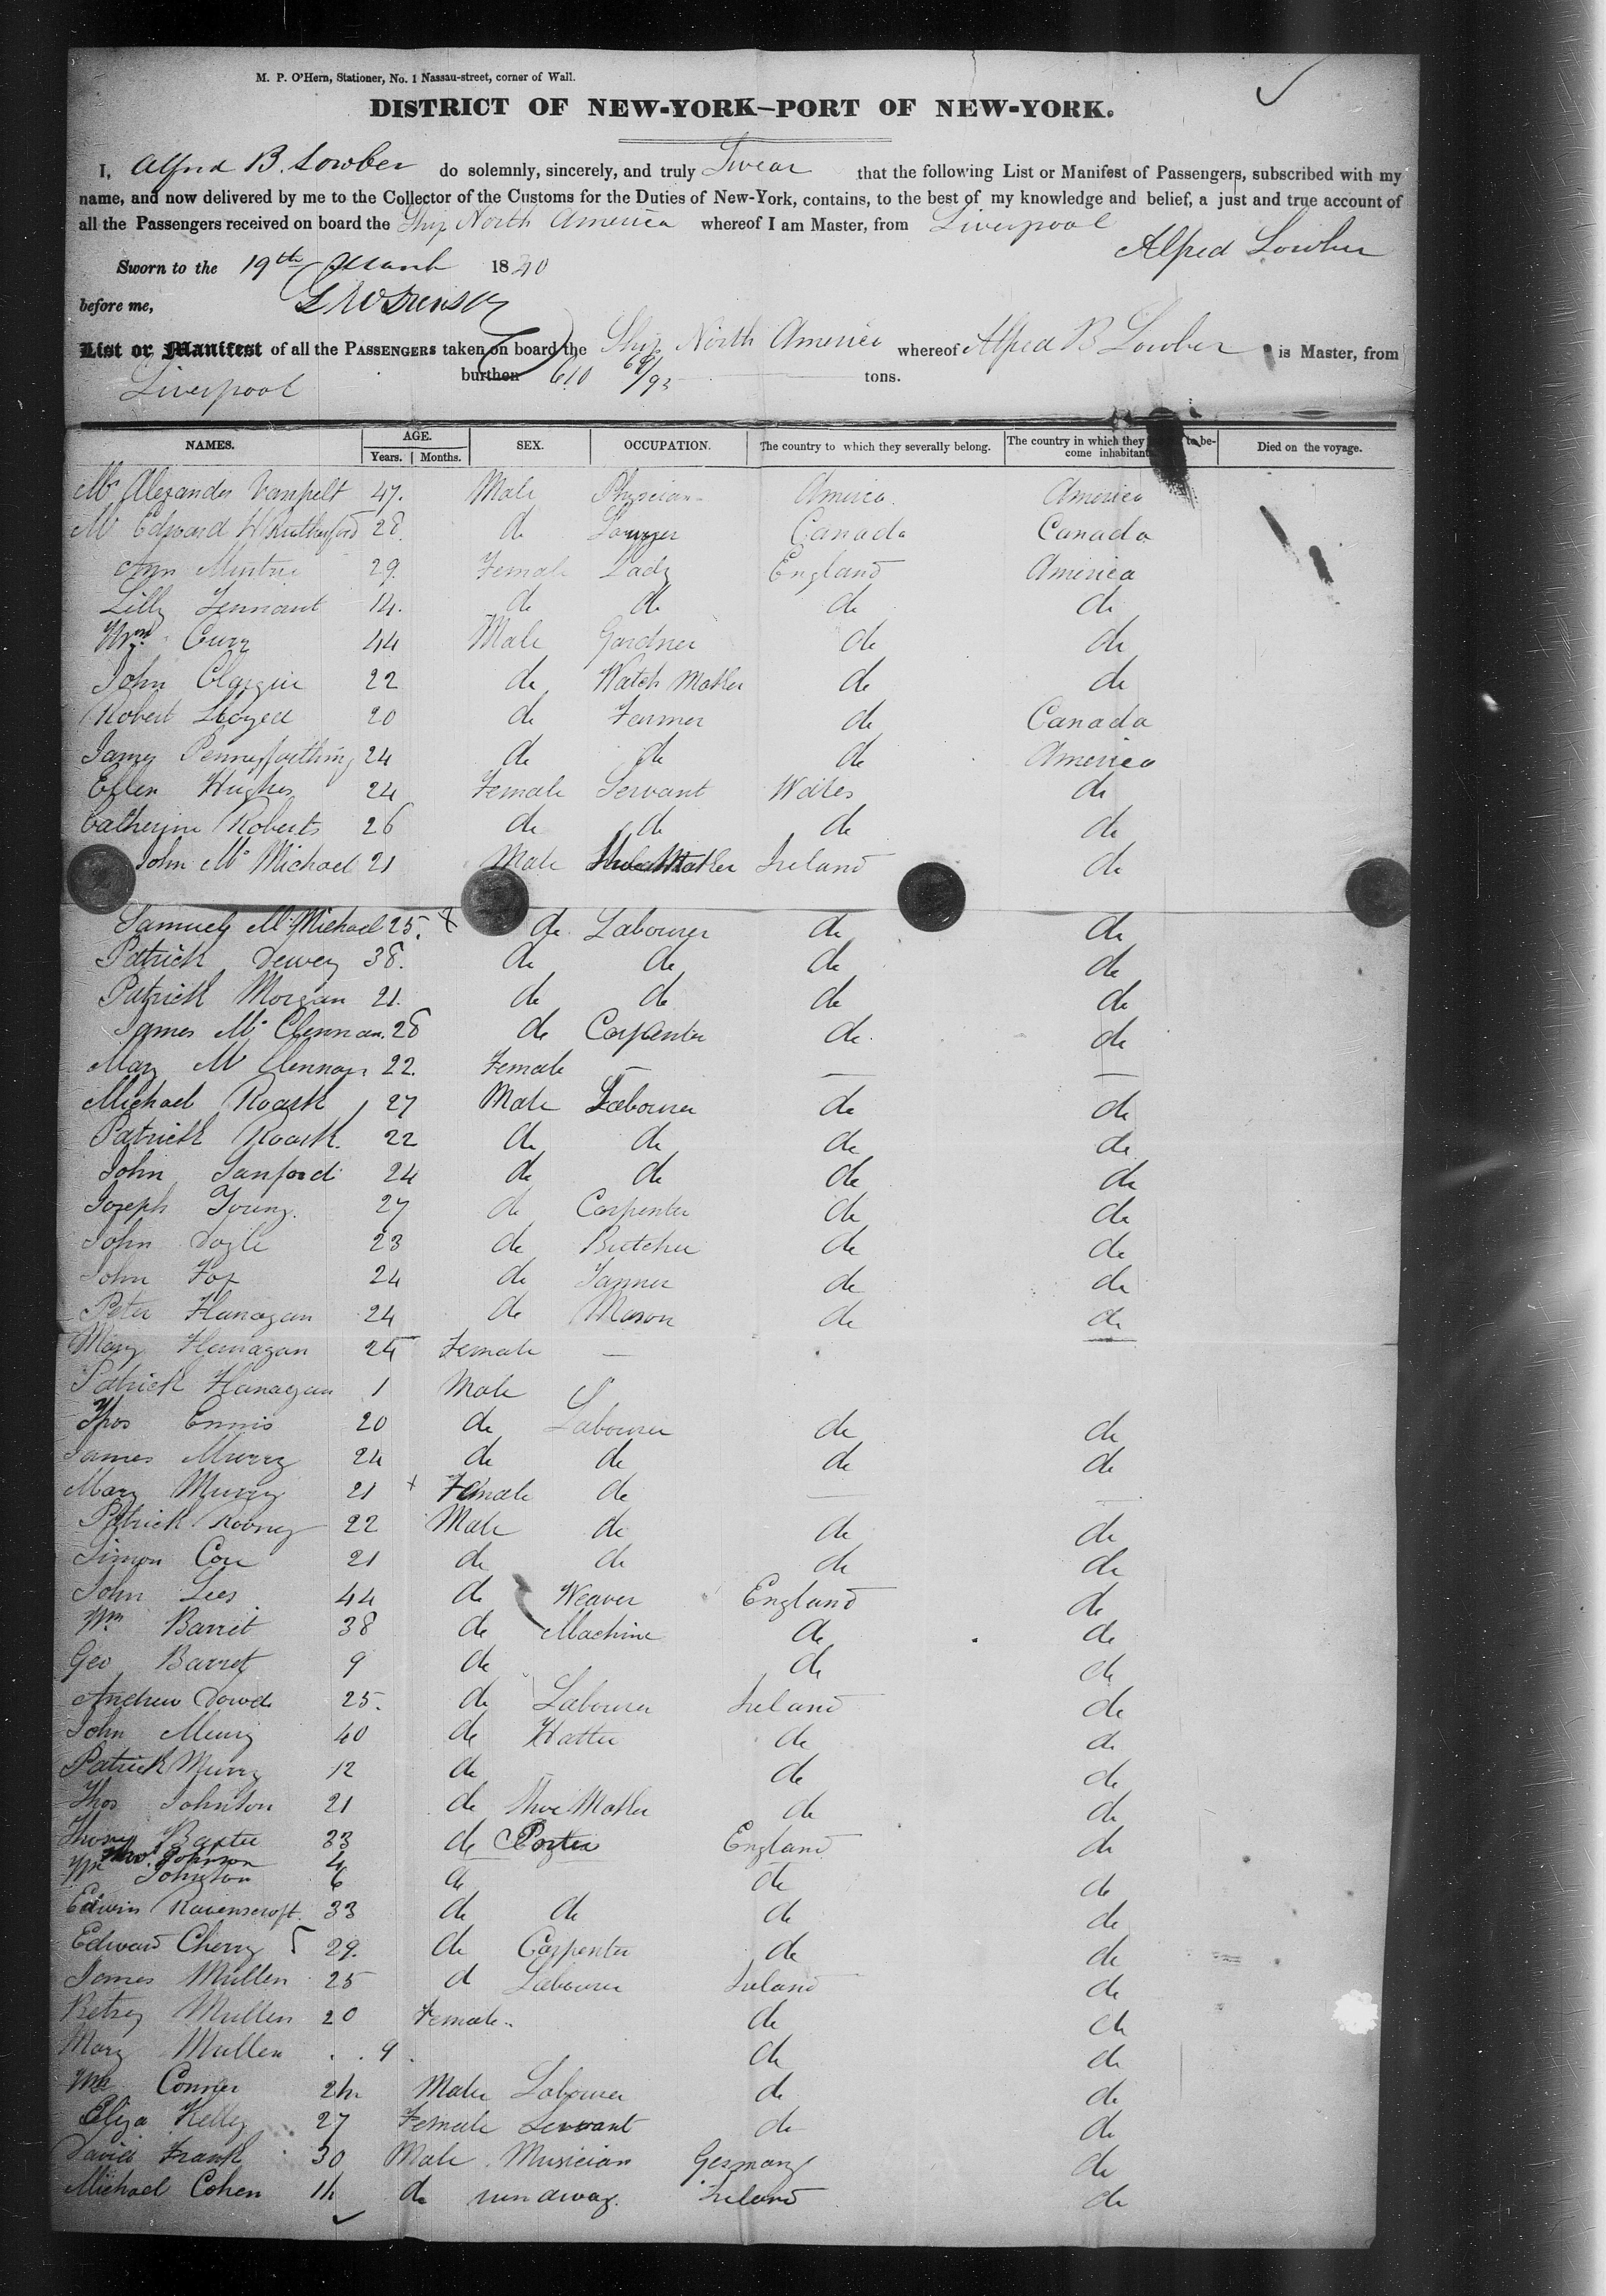 M. P. O'Hern, Stationer, No. 1 Nassau-street, corner of Wall.
DISTRICT OF NEW-YORK—PORT OF NEW-YORK.
I, Alfred B. Lowber do solemnly, sincerely, and truly Swear that the following List or Manifest of Passengers, subscribed with my
name, and now delivered by me to the Collector of the Customs for the Duties of New-York, contains, to the best of my knowledge and belief, a just and true account of
all the Passengers received on board the Ship North America whereof I am Master, from Liverpool
Alfred Lowber
Sworn to the 19th March 1840
before me,
List or Manifest of all the PASSENGERS taken on board the Ship North America whereof Alfred B Lowber is Master, from
Liverpool burthen 610 tons.
NAMES. AGE. Years. Months. SEX. OCCUPATION. The country to which they severally belong. The country in which they to become inhabitant Died on the voyage.
Mr Alexander Vanpelt 47. Male Physician America America
Mr Edward W Rutherford 28. do Lawyer Canada Canada
Ann 29. Female Lady England America
Lilly Tennant 14. do do do do
Wm Curr 44 Male Gardner do do
John 22 do Watch Maker do do
Robert Lloyed 20 do Farmer do Canada
James 24 do do do America
Ellen Hughes 24 Female Servant Wales do
Catherine Roberts 26 do do do do
John Mc Michael 21 Male Ireland do
Samuel Mc Michael 25. do Labourer do do
Patrick Dewey 38. do do do do
Patrick Morgan 21. do do do do
James Mc Clennan. 28 do Carpenter do. do
Mary Mc Clennan 22. Female — — —
Michael Roark 27 Male Labourer do do
Patrick Roark. 22 do do do do
John Sanford 24 do do do do
Joseph Young. 27 do Carpenter do do
John Doyle 23 do Butcher do do
John Fox 24 do Tanner do do
Peter Flanagan 24 do Mason do do
Mary Flanagan 25 Female —
Patrick Flanagan 1 Male
Thos Ennis 20 do Labourer do do
James Murry 24 do do do do
Mary Murry 21 + Female do — —
Patrick Rooney 22 Male do do do
Simon Coe 21 do do do do
John Lees 44 do Weaver England do
Wm Barret 38 do Machine do do
Geo Barret 9 do do do
Andrew Dowd 25. do Labourer Ireland do
John Murry 40 do Hatter do do
Patrick Murry 12 do — do do
Thos Johnson 21 do Shoe Maker do do
Thomas Baxter 33 do Porter England do
Thos. Johnson 4
Wm Johnston 6 do do do
Edwin Ravenscroft. 33 do do do do
Edward Cherry 29. do Carpenter do do
James Mullen 25 d Labourer Ireland do
Betsy Mullen 20 Female do do
Mary Mullen . . 9. do do
Conner 24 Male Labourer do do
Eliza Kelly 27 Female Servant do do
David Frank 30 Male Musician Germany do
Michael Cohen 14 do run away. Ireland do